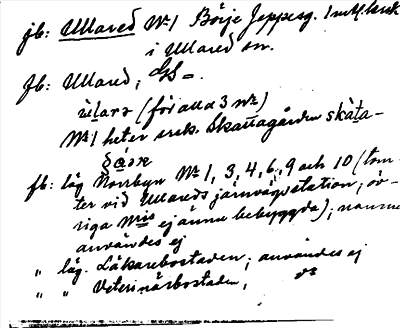 jb: Ullared Nr 1 Börje Jeppesg. 1 mtl. krsk
i Ullared sn.
fb: Ullared, GS =.
ùlarə (för alla 3 nr)
Nr 1 heter enk. Skattagården skáta-
gɑ̀ɹe
fb: läg. Norrbyn Nr 1, 3, 4, 6, 9 och 10 (tom-
ter vid Ullareds järnvägsstation, öv-
riga Nris ej ännu bebyggda); namnet
användes ej
" läg. Läkarebostaden; användes ej
" " Veterinärbostaden, do